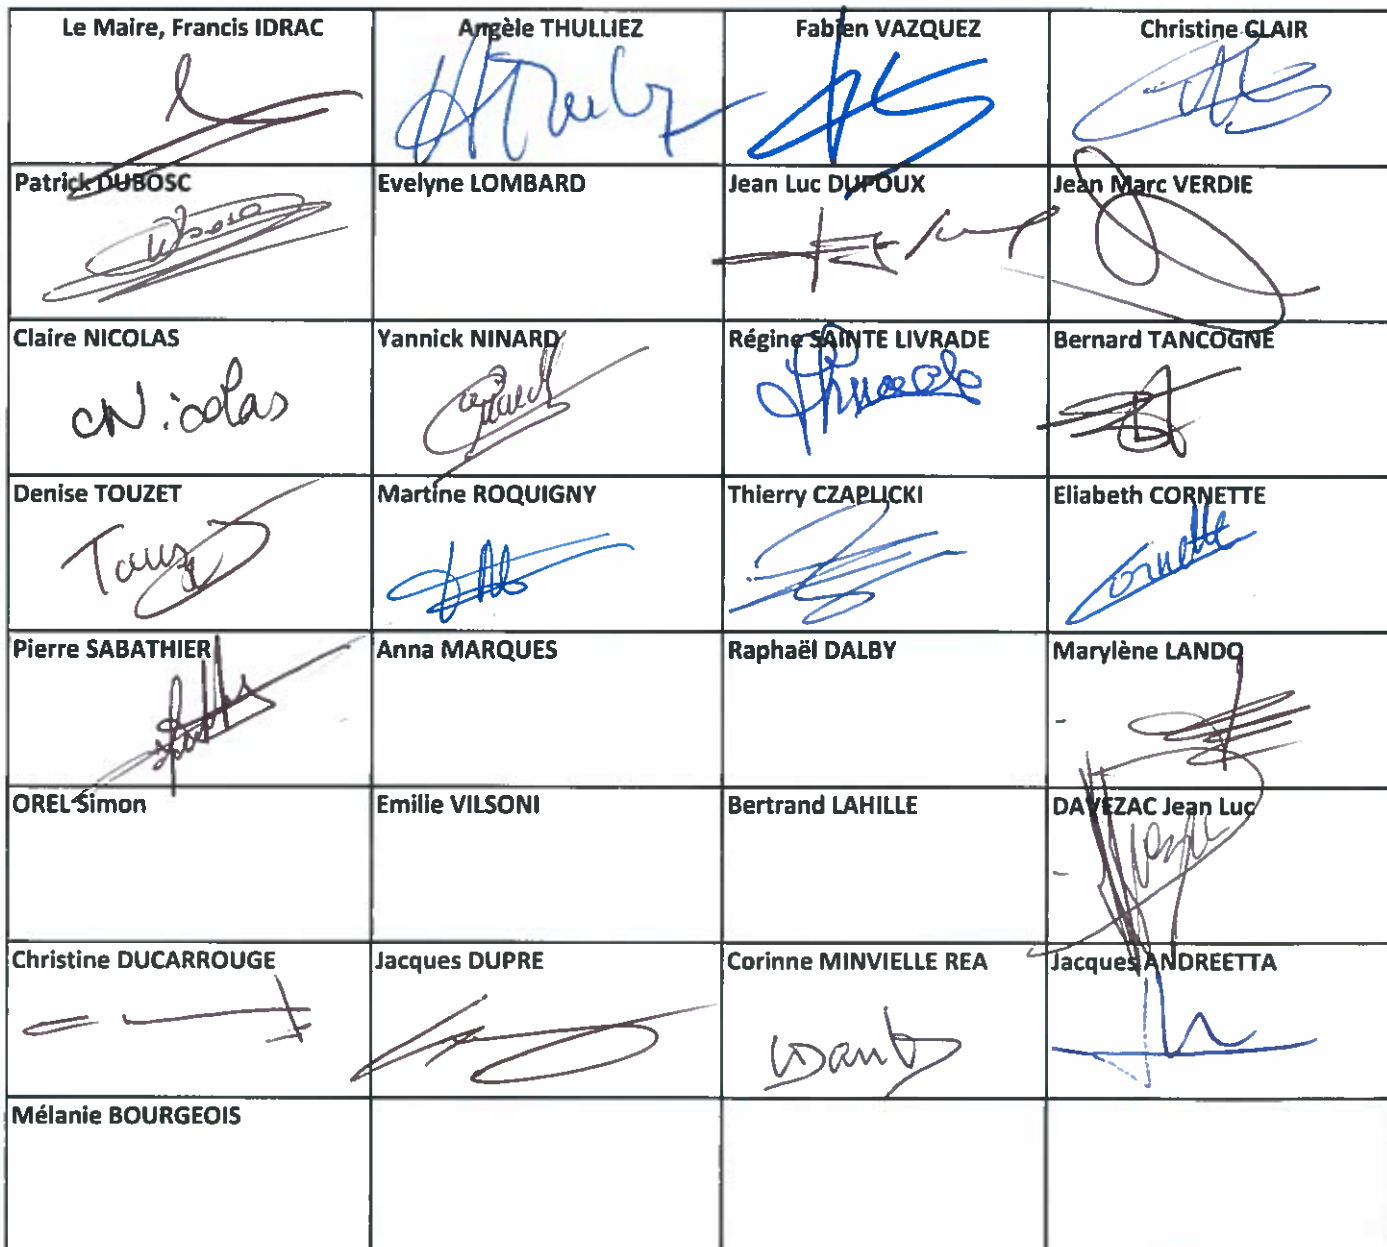 Le Maire, Francis IDRAC
Angèle THULLIEZ
Fabien VAZQUEZ
Christine CLAIR
Patrick DUBOSC
Evelyne LOMBARD
Jean Luc DUPOUX
Jean Marc VERDIE
Claire NICOLAS
Yannick NINARD
Régine SAINTE LIVRADE
Bernard TANCOGNE
CNicolas
Denise TOUZET
Martine ROQUIGNY
Thierry CZAPLICKI
Eliabeth CORNETTE
Cornette
Pierre SABATHIER
Anna MARQUES
Raphaël DALBY
Marylène LANDO
OREL Simon
Emilie VILSONI
Bertrand LAHILLE
DAVEZAC Jean Luc
Christine DUCARROUGE
Jacques DUPRE
Corinne MINVIELLE REA
Jacques ANDREETTA
Mélanie BOURGEOIS